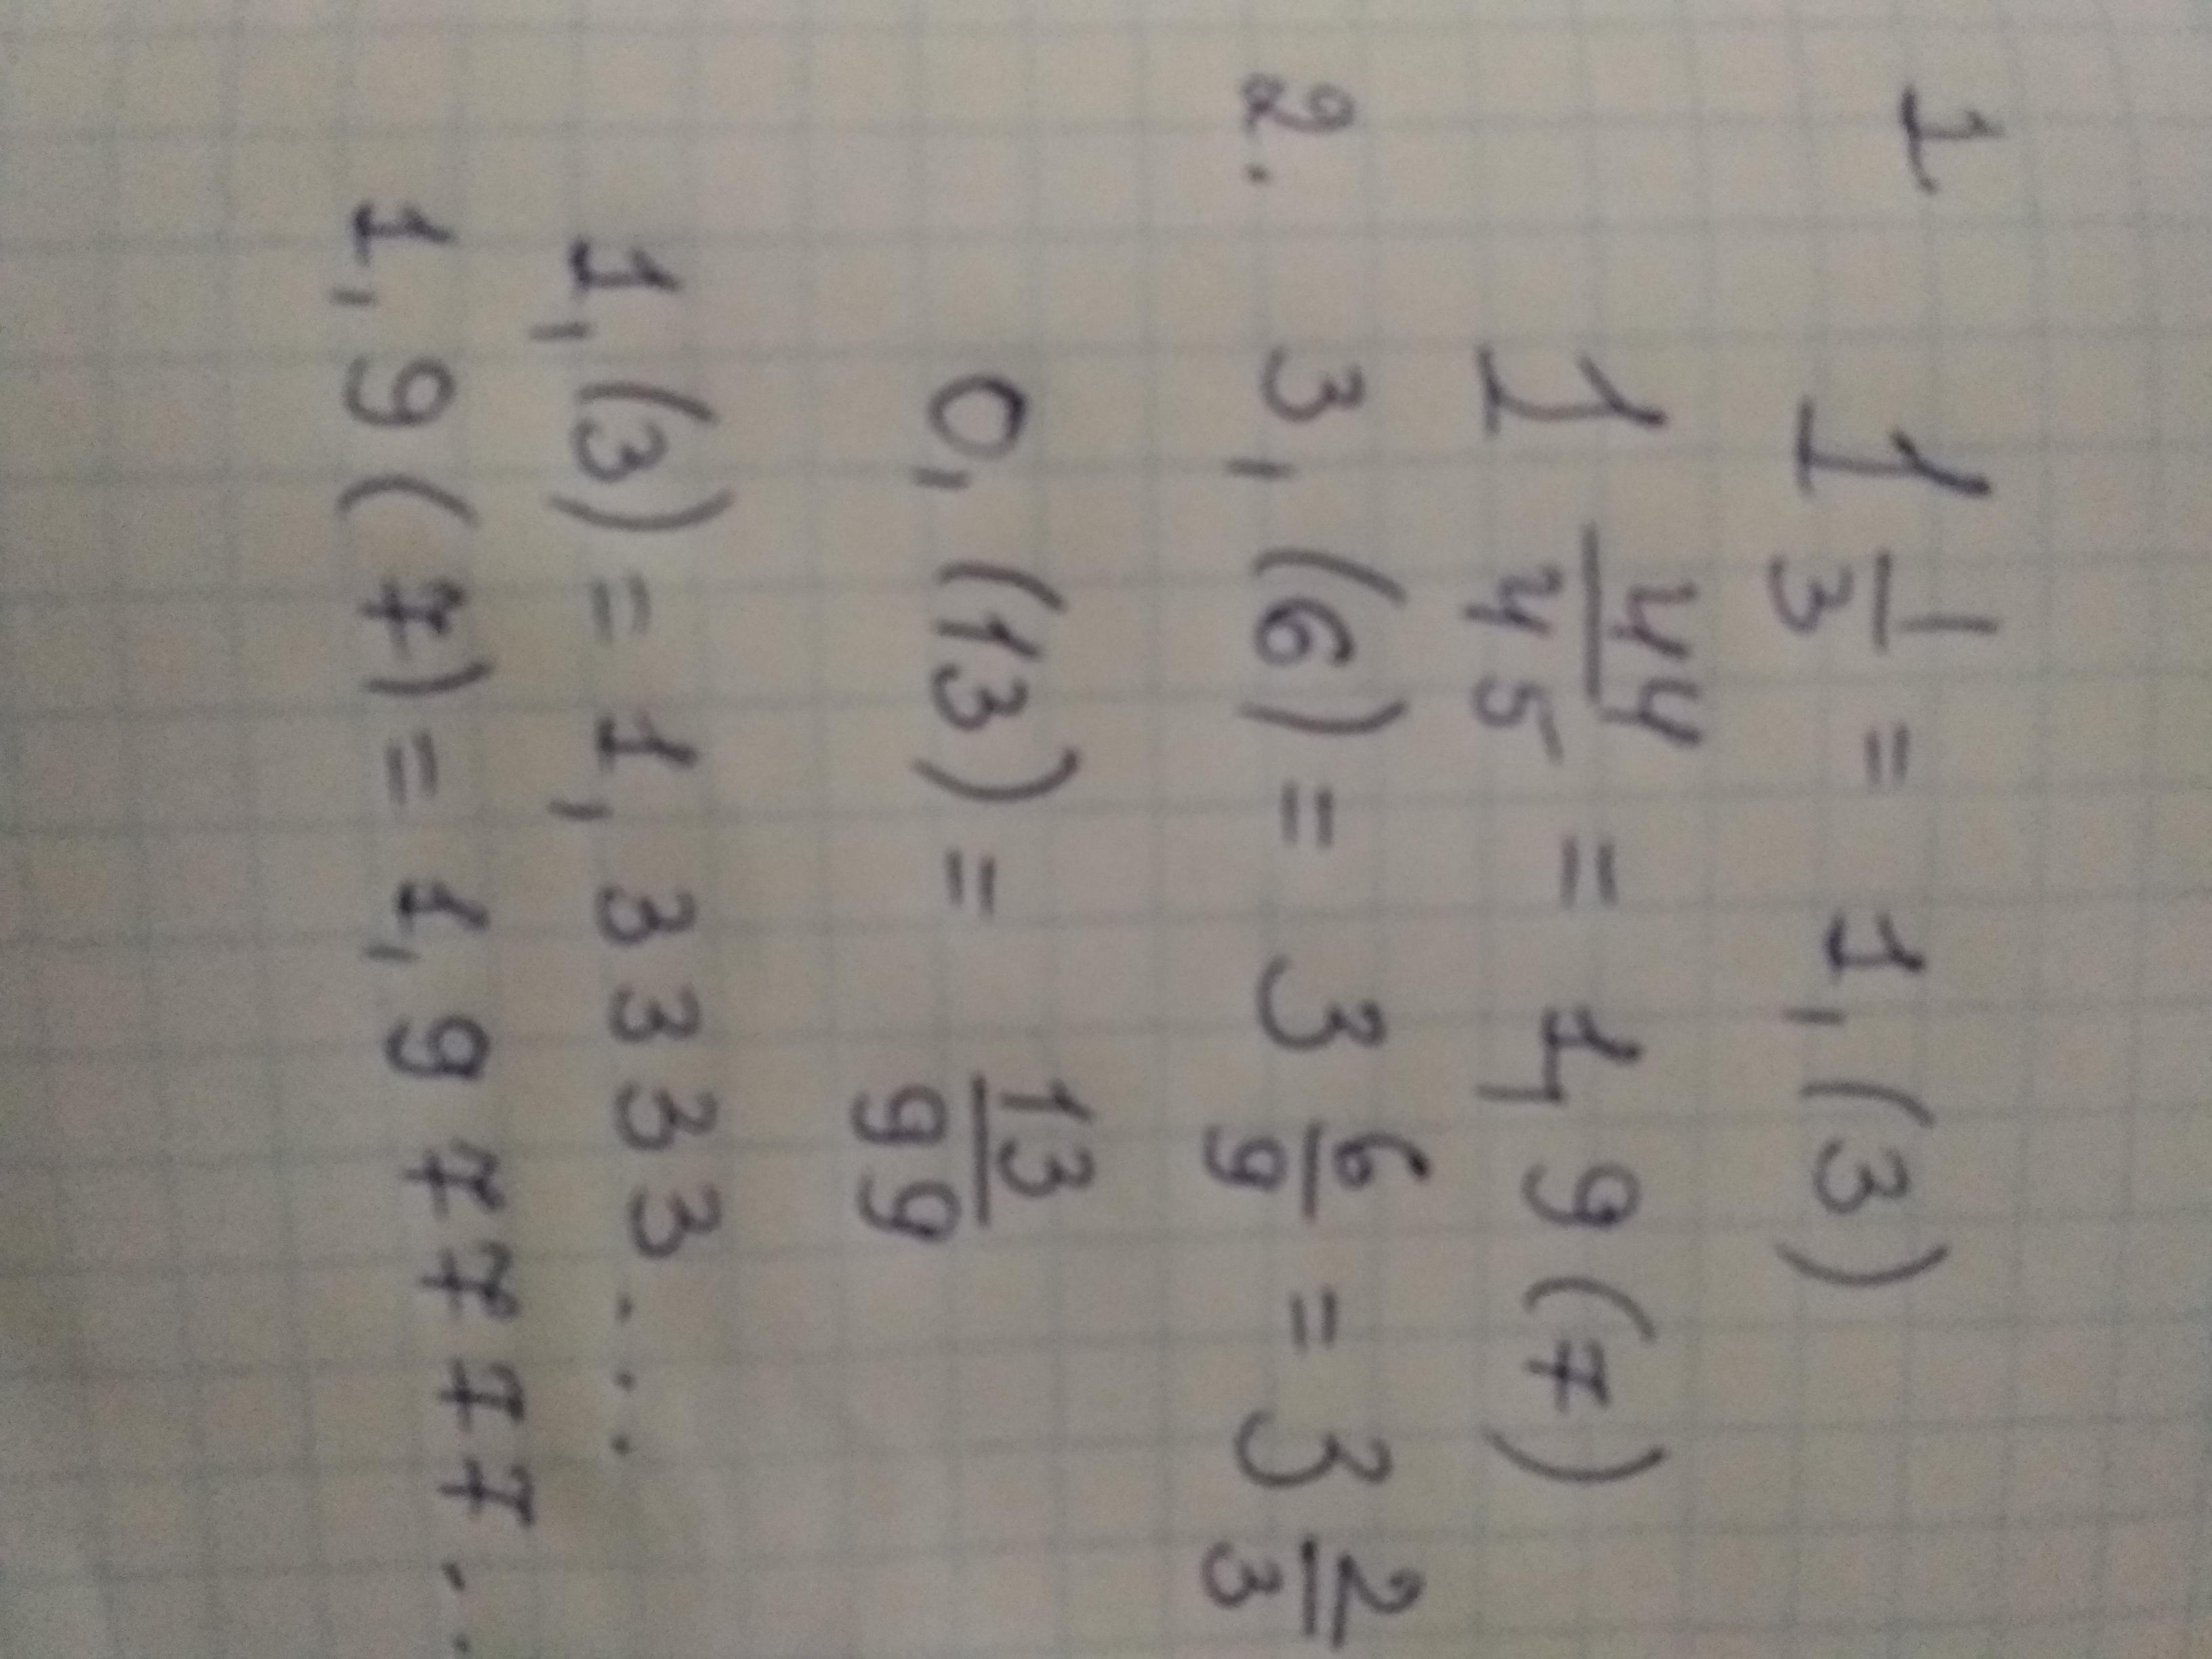 1
1 1/3 = 1,(3)
1 44/45 = 1,9(7)
2. 3,(6) = 3 6/9 = 3 2/3
0,(13) = 13/99
1,(3) = 1,3333...
1,9(7) = 1,97777...